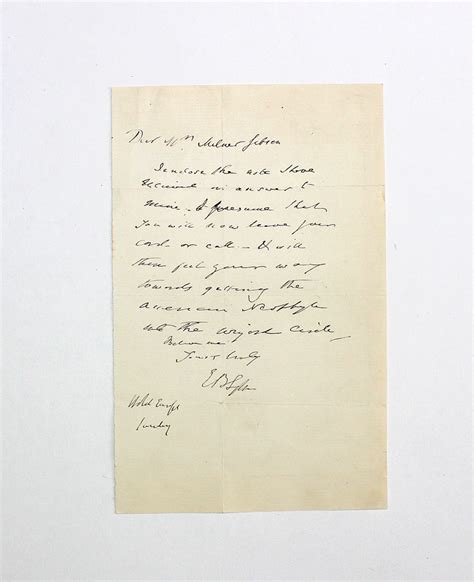 Dear Mrs Milner Gibson
I enclose the note I have
received in answer to
mine. I presume that
you will now leave your
card or call - & will
then feel your way
towards getting the
American
into the Circle
Believe me
Yours truly
EBLytton
Sunday